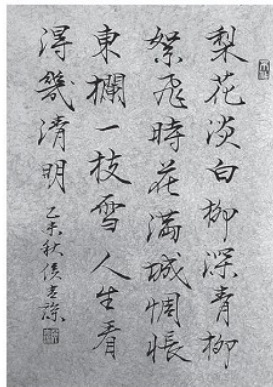 梨花淡白柳深青柳
絮飛時花滿城惆悵
東欄一枝雪人生看
得幾清明
乙未秋